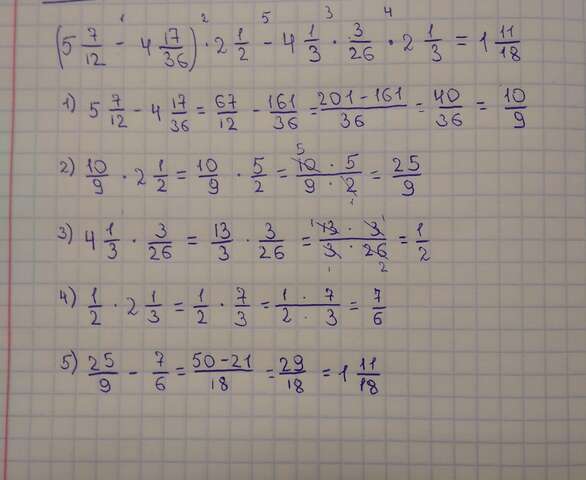 (5 7/12 - 4 17/36) · 2 1/2 - 4 1/3 · 3/26 · 2 1/3 = 1 11/18
1) 5 7/12 - 4 17/36 = 67/12 - 161/36 = 201-161/36 = 40/36 = 10/9
2) 10/9 · 2 1/2 = 10/9 · 5/2 = 10 · 5/9 · 2 = 25/9
3) 4 1/3 · 3/26 = 13/3 · 3/26 = 13 · 3/3 · 26 = 1/2
4) 1/2 · 2 1/3 = 1/2 · 7/3 = 1 · 7/2 · 3 = 7/6
5) 25/9 - 7/6 = 50-21/18 = 29/18 = 1 11/18